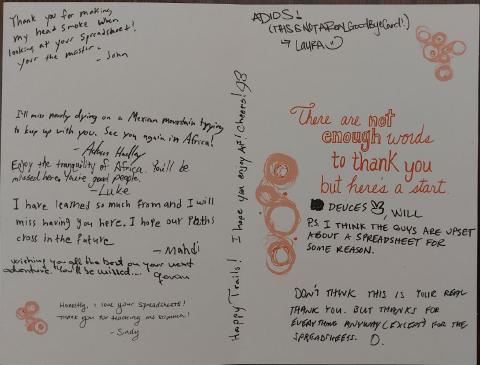 Thank you for making
my head smoke when
looking at your Spreadsheet!
your the master.
- John
I'll miss nearly dying on a Mexican mountain trying
to kup up with you. See you again in Africa!
- Adam
Enjoy the tranquility of Africa. You'll be
missed here. You're good people.
- Luke
I have learned so much from and I will
miss having you here. I hope our Paths
cross in the future
- Mahdi
wishing you all the best on your next
adventure. You'll be missed....
Honestly, I love your spreadsheets!
Thank you for teaching me
- Sindy
Happy Trails! I hope you enjoy AF! Cheers!
ADIOS!
(THIS IS NOT A REAL GOODBYE CARD!)
LAURA
There are not
enough words
to thank you
but here's a start.
DEUCES, WILL
P.S. I THINK THE GUYS ARE UPSET
ABOUT A SPREADSHEET FOR
SOME REASON.
DON'T THINK THIS IS YOUR REAL
THANK YOU. BUT THANKS FOR
EVERYTHING ANYWAY (EXCEPT) FOR THE
SPREADSHEETS. D.